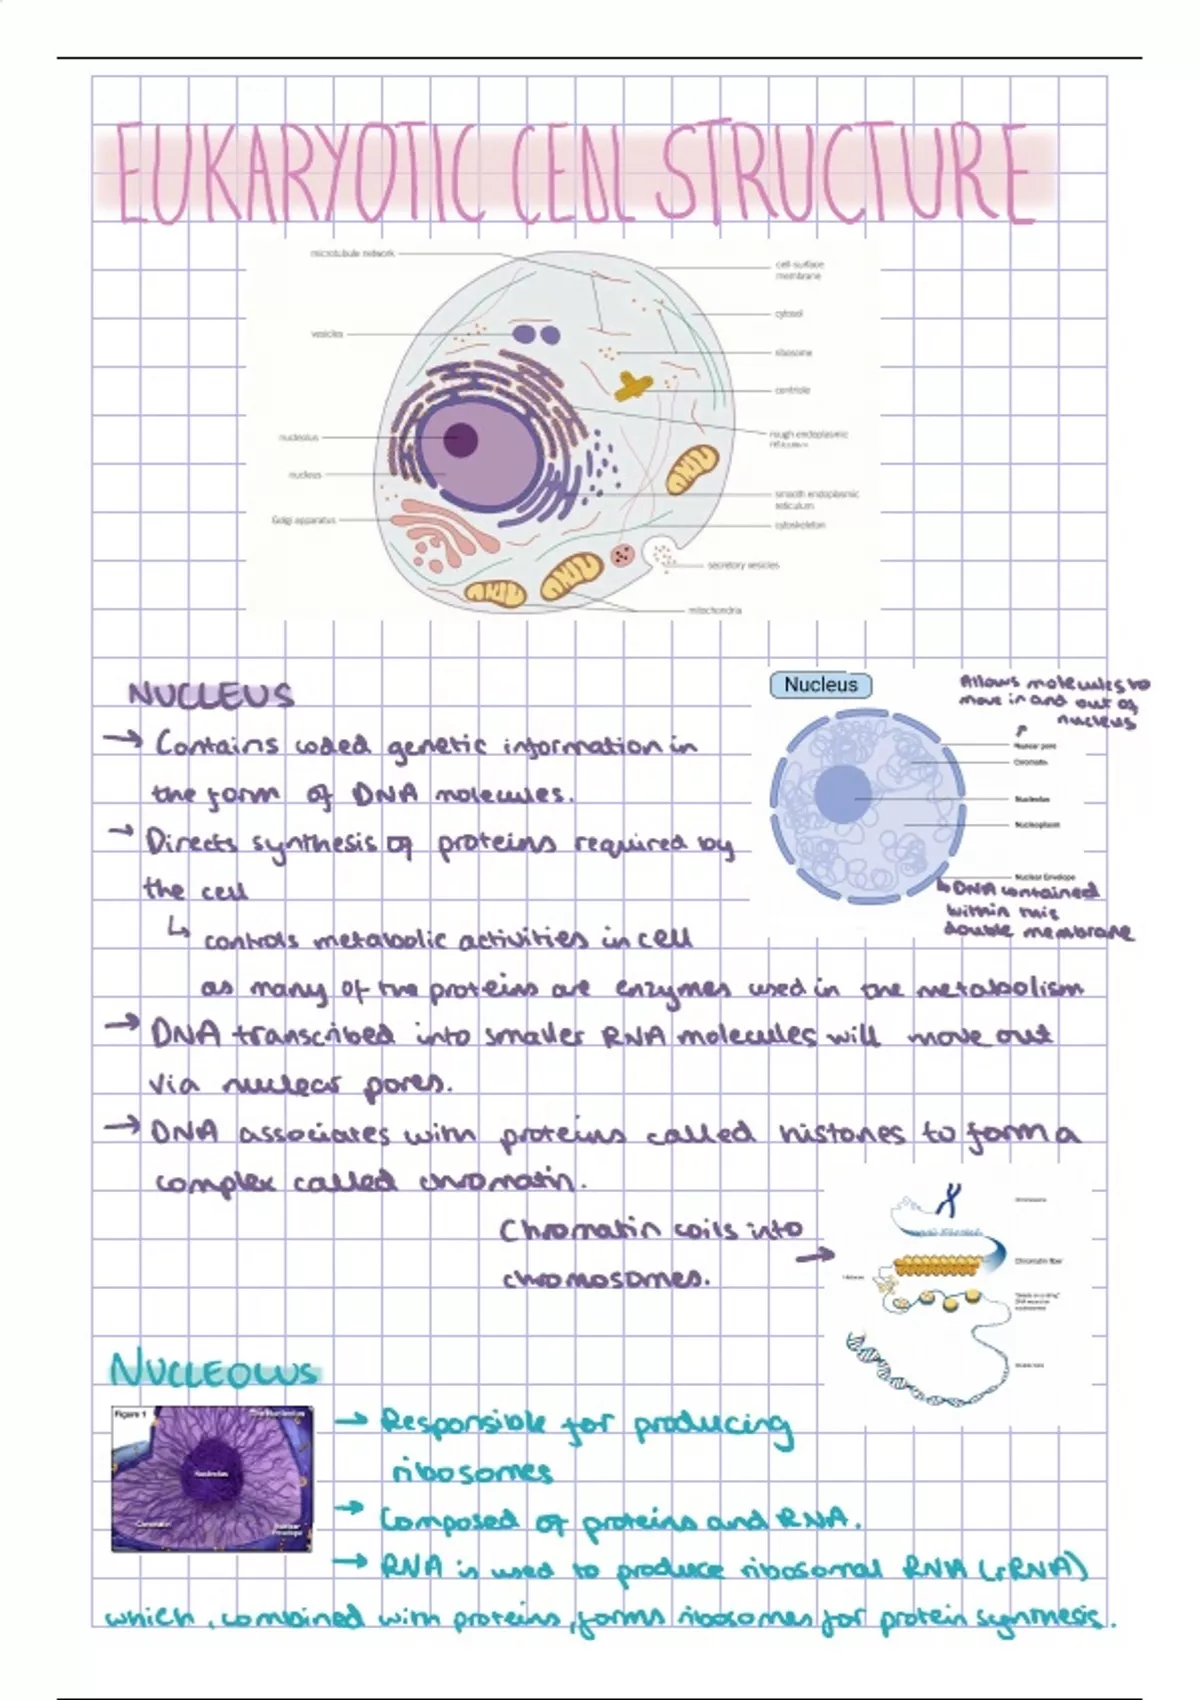 EUKARYOTIC CELL STRUCTURE
microtubule network
cell-surface
membrane
cytosol
vesicles
ribosome
centriole
nucleolus
rough endoplasmic
nucleus
smooth endoplasmic
reticulum
Golgi apparatus
cytoskeleton
secretory vesicles
mitochondria
NUCLEUS
→ Contains coded genetic information in
the form of DNA molecules.
→ Directs synthesis of proteins required by
the cell
↳ controls metabolic activities in cell
as many of the proteins are enzymes used in the metabolism
→ DNA transcribed into smaller RNA molecules will move out
via nuclear pores.
→ DNA associates with proteins called histones to form a
complex called chromatin.
Chromatin coils into →
chromosomes.
Nucleus
Allows molecules to
move in and out of
nucleus
Nuclear pore
Chromatin
Nucleolus
Nucleoplasm
Nuclear Envelope
↳ DNA contained
within this
double membrane
Chromosome
Chromatin fiber
Histones
NUCLEOLUS
Figure 1
The Nucleolus
Nucleolus
Chromatin
Nuclear
Envelope
→ Responsible for producing
ribosomes
→ Composed of proteins and RNA.
→ RNA is used to produce ribosomal RNA (rRNA)
which, combined with proteins, forms ribosomes for protein synthesis.